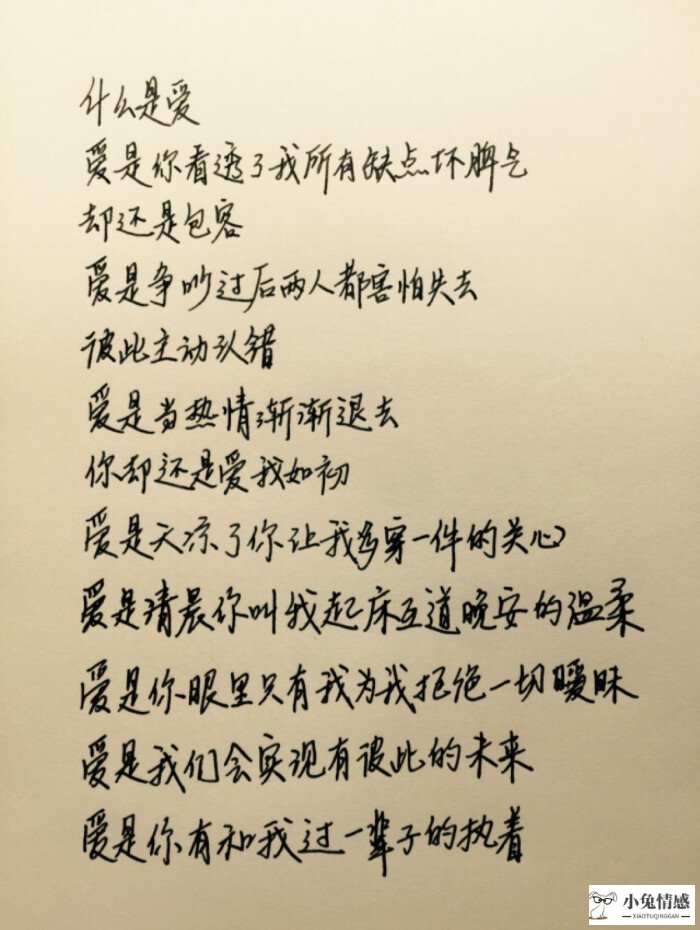 什么是爱
爱是你看透了我所有缺点坏脾气
却还是包容
爱是争吵过后两人都害怕失去
彼此主动认错
爱是当热情渐渐退去
你却还是爱我如初
爱是天凉了你让我多穿一件的关心
爱是清晨你叫我起床互道晚安的温柔
爱是你眼里只有我为我拒绝一切暧昧
爱是我们会实现有彼此的未来
爱是你有和我过一辈子的执着
小兔情感
XIAOTUQINGGAN